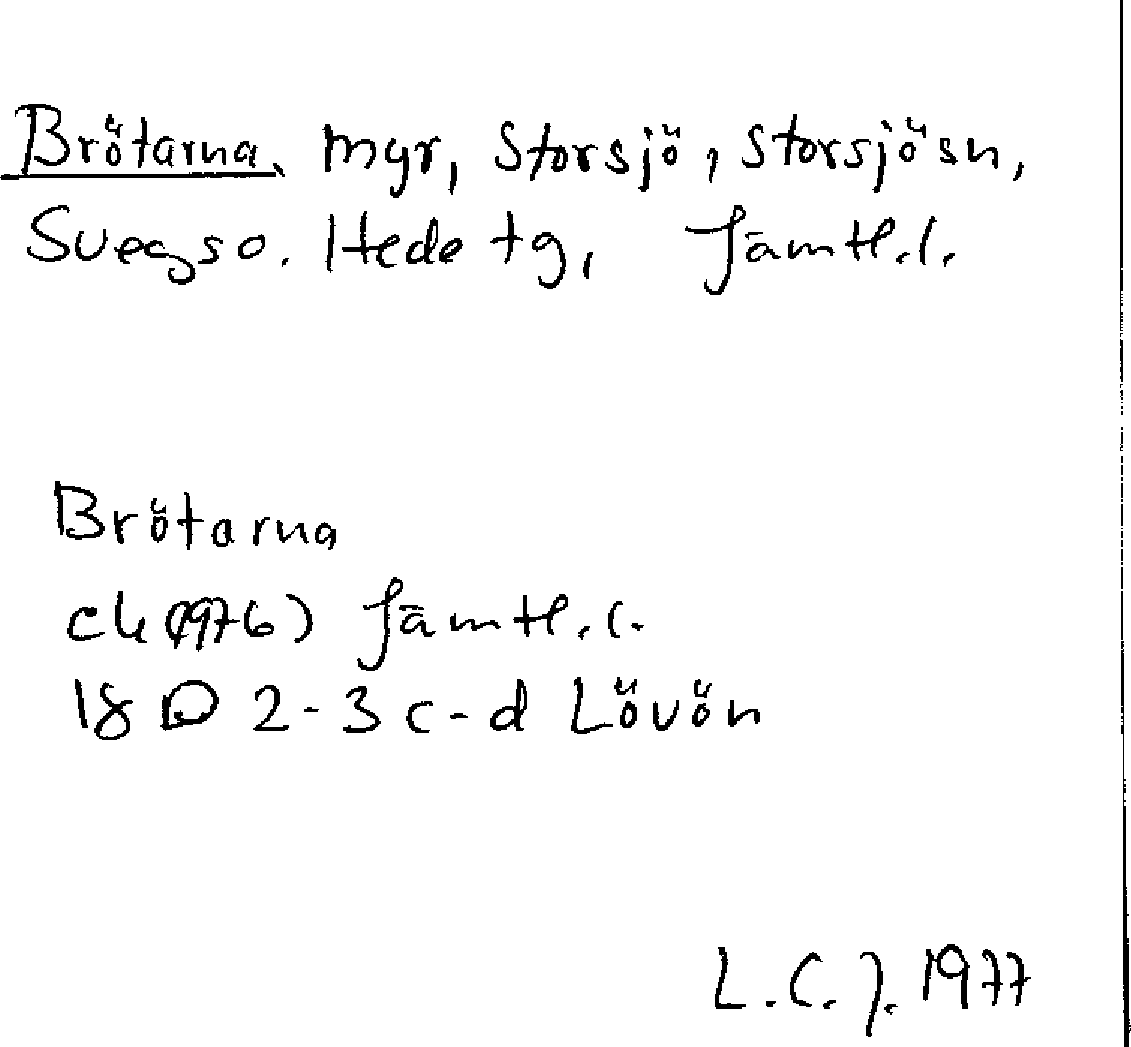 Brötarna, myr, Storsjö, Storsjösn,
Svegs o. Hede tg, Jämtl.l.
Brötarna
ek (1976) Jämtl.l.
18 D 2-3 c-d Lövön
L.C.J. 1977